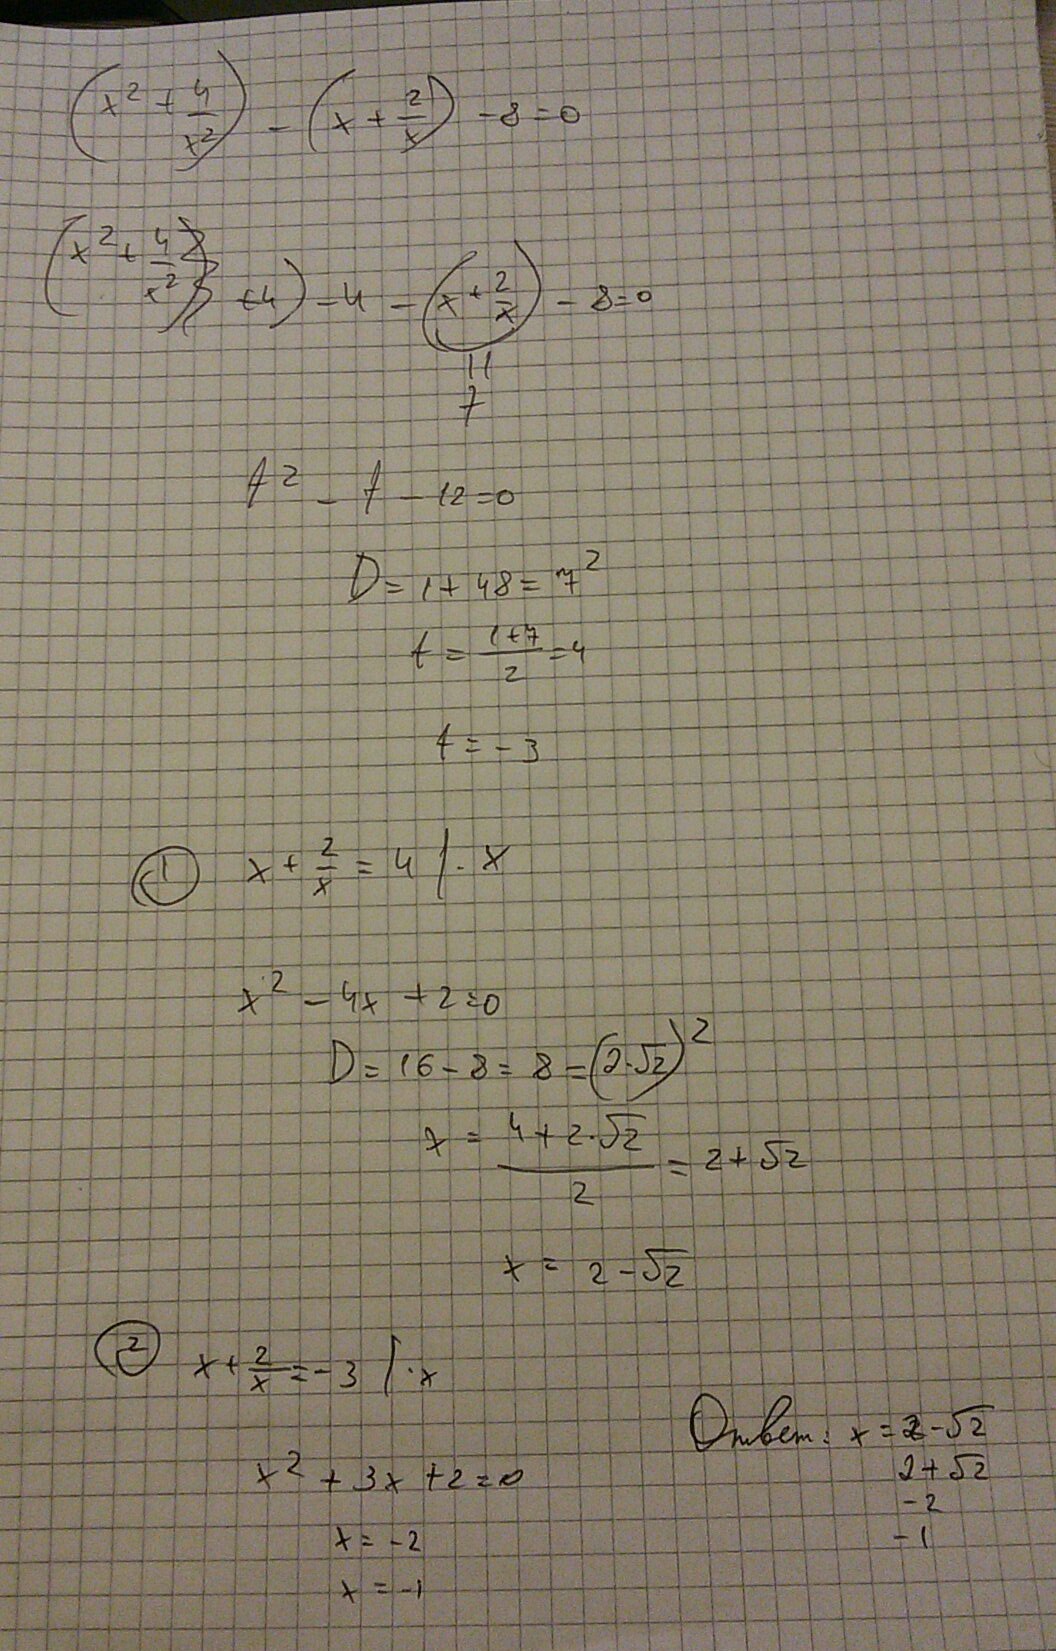 (x² + 4/x²) - (x + 2/x) - 8 = 0
(x² + 4/x² + 4) - 4 - (x + 2/x) - 8 = 0
t² - t - 12 = 0
D = 1 + 48 = 7²
t = (1+7)/2 = 4
t = -3
1 x + 2/x = 4 | · x
x² - 4x + 2 = 0
D = 16 - 8 = 8 = (2·√2)²
x = (4 + 2·√2)/2 = 2 + √2
x = 2 - √2
2 x + 2/x = -3 | · x
x² + 3x + 2 = 0
x = -2
x = -1
Ответ: x = 2 - √2
2 + √2
-2
-1